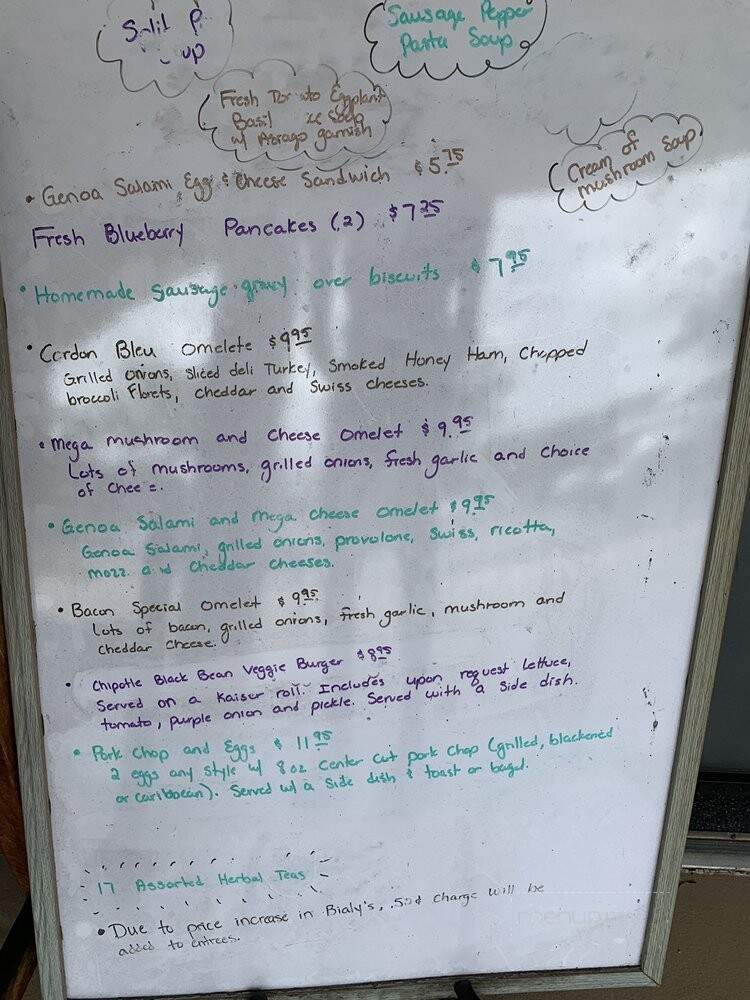 Split P
up
Sausage Pepper
Pasta Soup
Fresh Tomato Eggplant
Basil Soup
w/ Asiago garnish
Cream of
mushroom Soup
• Genoa Salami Egg & Cheese Sandwich $5.75
Fresh Blueberry Pancakes (2) $7.25
• Homemade Sausage gravy over biscuits $7.95
• Cordon Bleu omelete $9.95
Grilled onions, sliced deli Turkey, Smoked Honey Ham, Chopped
broccoli Florets, cheddar and Swiss cheeses.
• Mega mushroom and Cheese omelet $9.95
Lots of mushrooms, grilled onions, fresh garlic and choice
of Chee e.
• Genoa Salami and mega cheese omelet $9.95
Genoa Salami, grilled onions, provolone, Swiss, ricotta,
mozz. and Cheddar cheeses.
• Bacon Special omelet $9.95
Lots of bacon, grilled onions, fresh garlic, mushroom and
cheddar cheese.
• Chipotle Black Bean Veggie Burger $8.95
Served on a Kaiser roll. Includes upon request lettuce,
tomato, purple onion and pickle. Served with a side dish.
• Pork Chop and Eggs $11.95
2 eggs any style w/ 8 oz center cut pork chop (grilled, blackened
or caribbean). Served w/ a side dish & toast or bagel.
17 Assorted Herbal Teas
• Due to price increase in Bialy's, .50¢ charge will be
added to entrees.